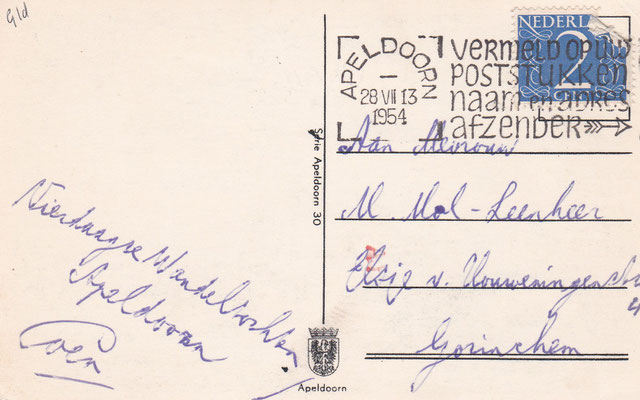 Gld
NEDERLA
2
APELDOORN
28 VII 13
1954
VERMELD OP UW
POSTSTUKKEN
naam en adres
afzender
Serie Apeldoorn 30
Vierdaagse Wandeltochten
Apeldoorn
Coen
Aan Mevrouw
M. Mol-Leenheer
v. Houweningen
Gorinchem
Apeldoorn